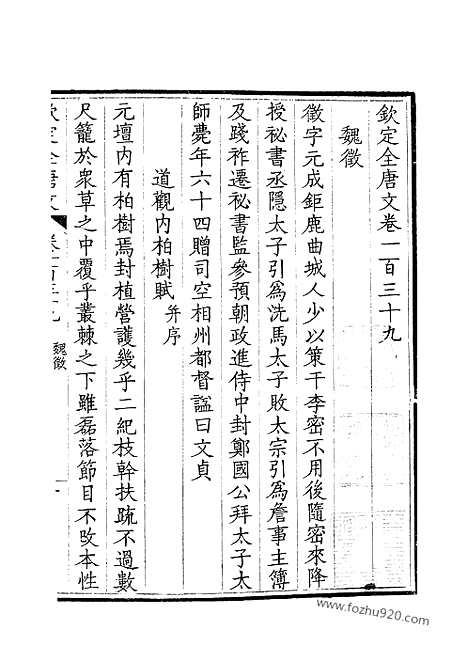 欽定全唐文卷一百三十九
魏徵
徵字元成鉅鹿曲城人少以策干李密不用後隨密來降
授祕書丞隱太子引爲洗馬太子敗太宗引爲詹事主簿
及踐祚遷祕書監參預朝政進侍中封鄭國公拜太子太
師薨年六十四贈司空相州都督諡曰文貞
道觀内柏樹賦并序
元壇内有柏樹焉封植營護幾乎二紀枝幹扶疏不過數
尺籠於衆草之中覆乎叢棘之下雖磊落節目不改本性
欽定全唐文 卷一百三十九 魏徵 一
www.fozhu920.com